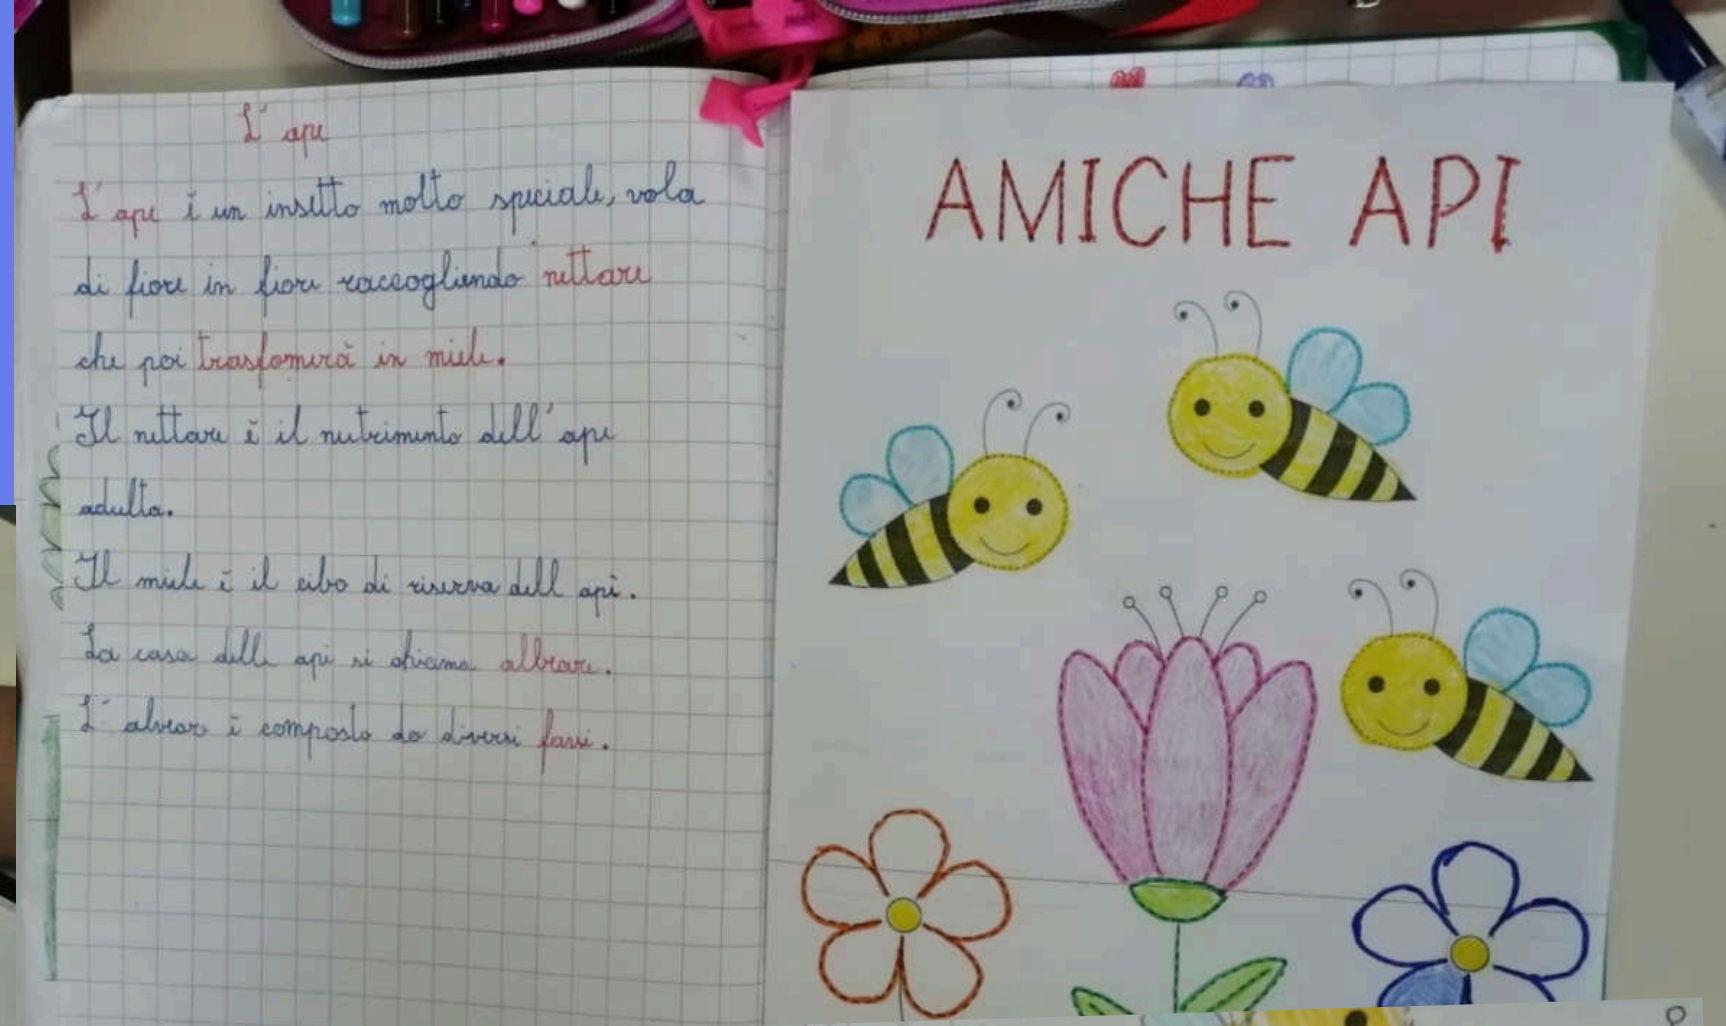 L'ape
L'ape è un insetto molto speciale, vola
di fiore in fiore raccogliendo nettare
che poi trasfomerà in miele.
Il nettare è il nutrimento dell'ape
adulta.
Il miele è il cibo di riserva dell api.
La casa delle api si chiama albeare.
L'alvear è composto da diversi favi.
AMICHE API